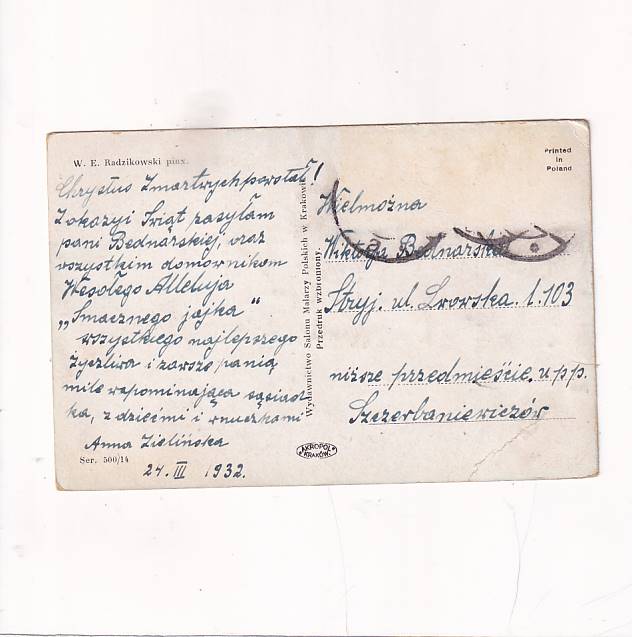 W. E. Radzikowski pinx.
Chrystus Zmartwychpowstał!
Z okazyi Świąt zasyłam
pani Bednarskiej, oraz
wszystkim domownikom
Wesołego Alleluja
„Smacznego jajka"
wszystkiego najlepszego
Życzliwa i zawsze panią
mile wspominająca sąsiad
ka, z dziećmi i wnuczkami
Anna Zielińska
Ser. 500/14
24. III 1932.
Wydawnictwo Salonu Malarzy Polskich w Krakowie
Przedruk wzbroniony.
AKROPOL
KRAKÓW.
Printed
in
Poland
Wielmożna
Wiktorja Bednarska
Stryj. ul. Lwowska. l. 103
niższe przedmieście. u pp.
Szczerbaniewiczów